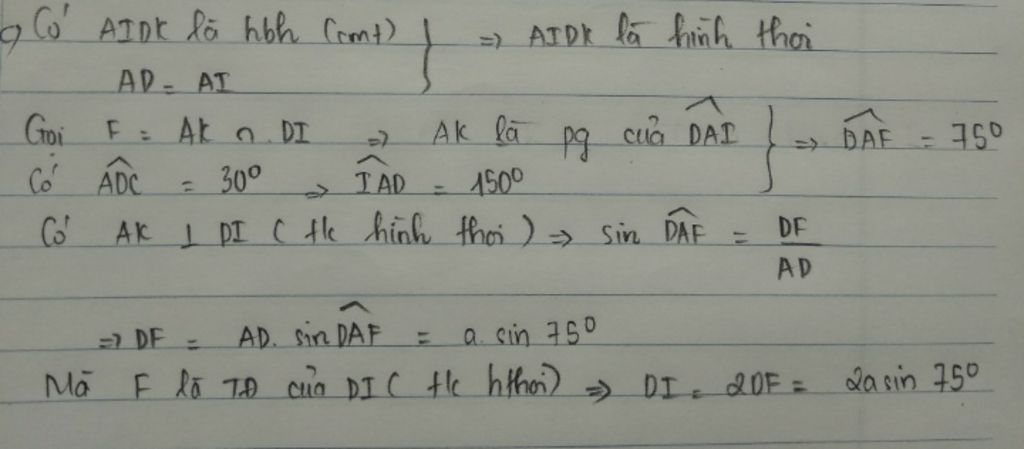 c) Có AIDK là hbh (cmt) } => AIDK là hình thoi
AD = AI
Gọi F = AK ∩ DI => AK là pg của \widehat{DAI} } => \widehat{DAF} = 75°
Có \widehat{ADC} = 30° => \widehat{IAD} = 150°
Có AK ⊥ DI ( t/c hình thoi ) => sin \widehat{DAF} = \frac{DF}{AD}
=> DF = AD. sin \widehat{DAF} = a. sin 75°
Mà F là TĐ của DI ( t/c hthoi) => DI = 2DF = 2a sin 75°